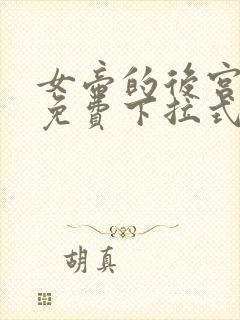 女帝的後宮
免費下拉式
胡真